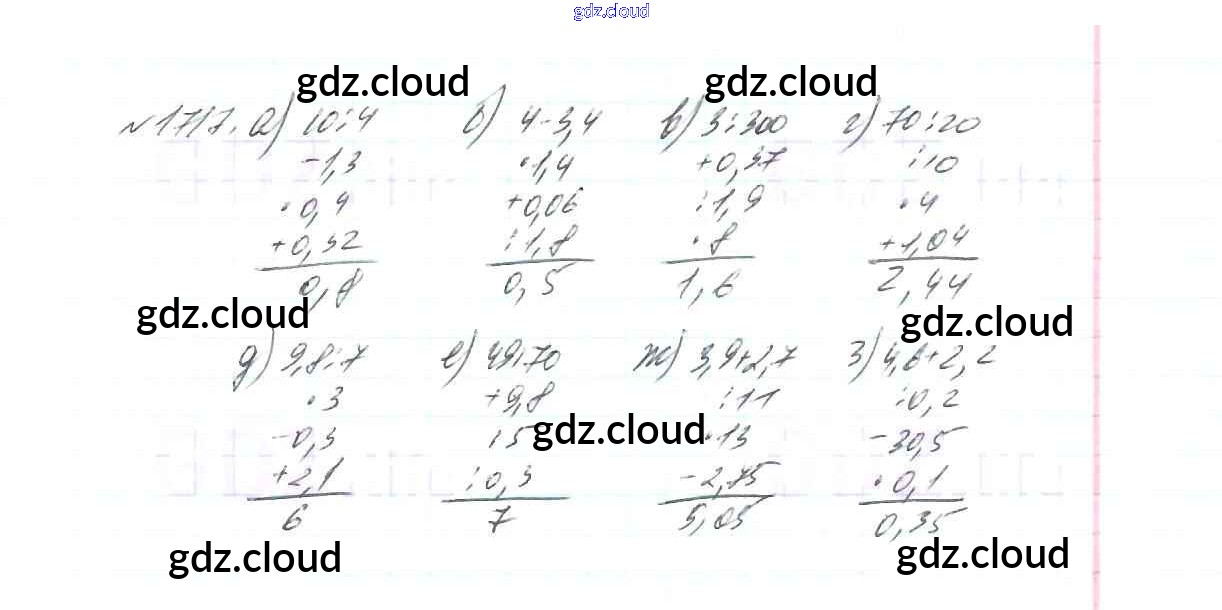 gdz.cloud
gdz.cloud gdz.cloud
№1717. а) 10:4 б) 4-3,4 в) 3:300 г) 70:20
-1,3 •1,4 +0,37 :10
•0,4 +0,06 :1,9 •4
+0,32 :1,8 •8 +1,04
0,8 0,5 1,6 2,44
gdz.cloud gdz.cloud
д) 9,8:7 е) 49:70 ж) 3,9+2,7 з) 4,6+2,2
•3 +9,8 :11 :0,2
-0,3 :5 gdz.cloud •13 -30,5
+2,1 :0,3 -2,75 •0,1
6 7 5,05 0,35
gdz.cloud gdz.cloud